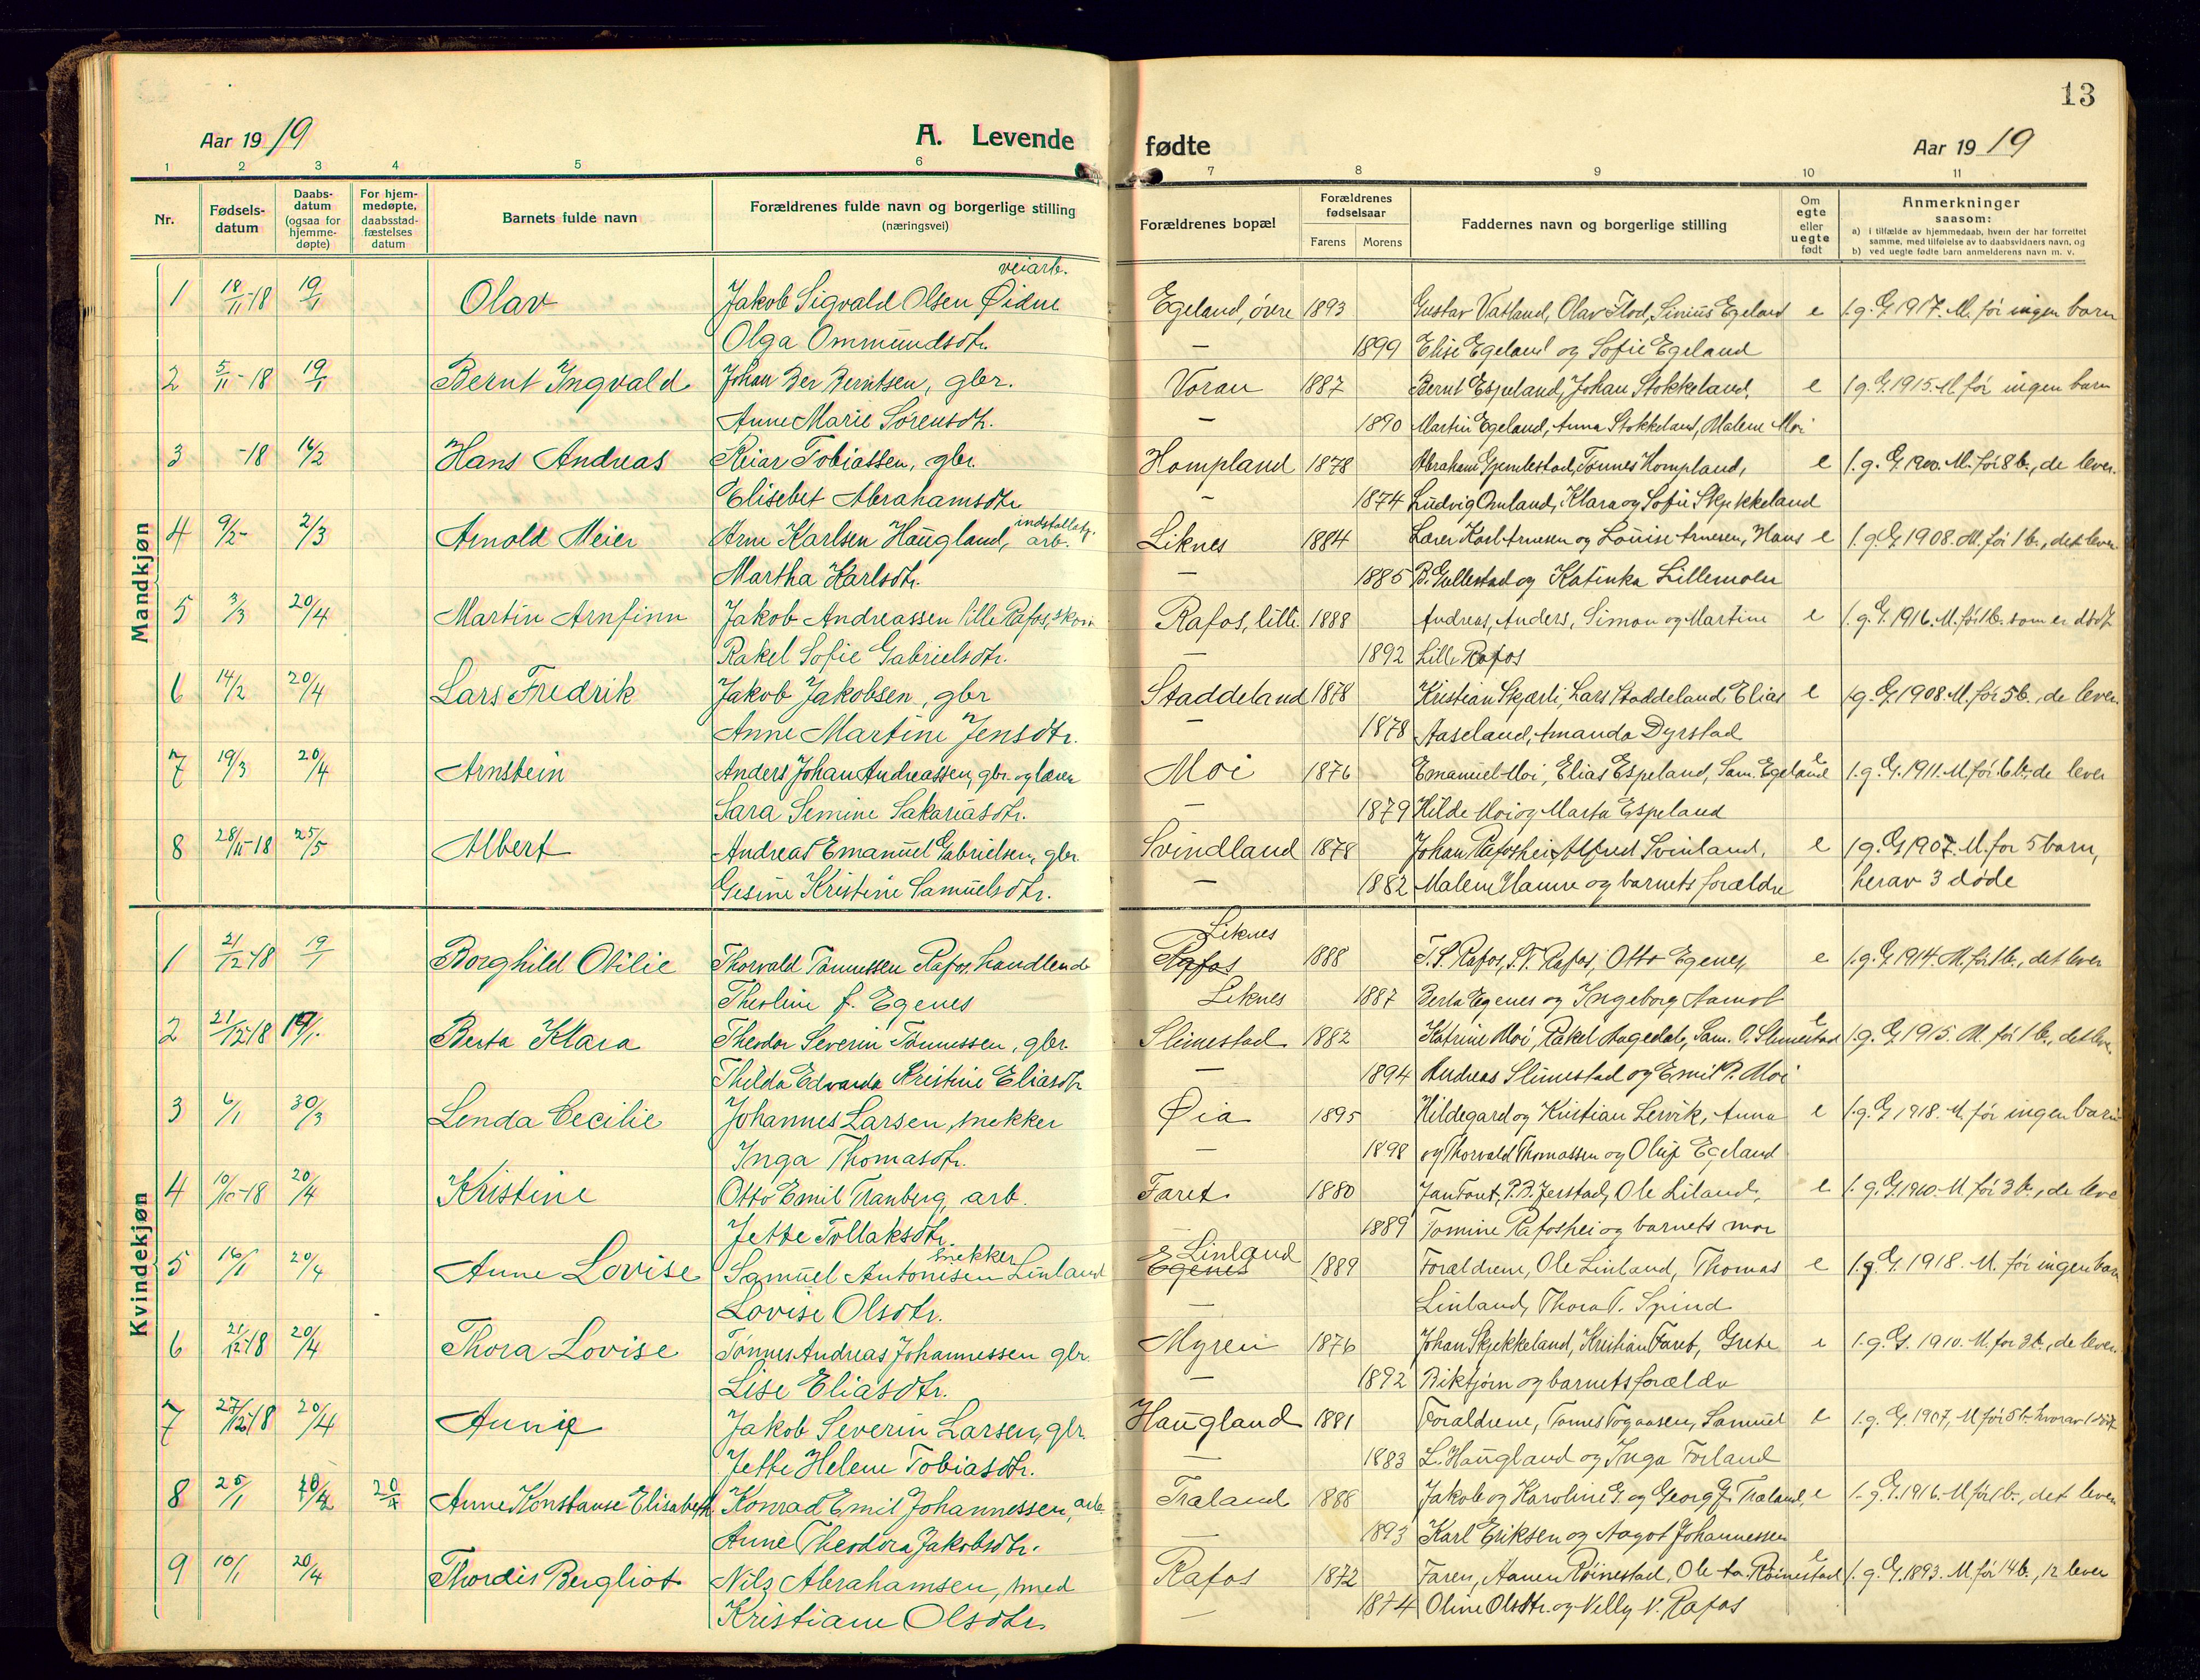 13
Aar 1919
A. Levende fødte
Aar 1919
1 2 3 4 5 6 7 8 9 10 11
Nr.
Fødsels-datum
Daabs-datum (ogsaa for hjemme-døpte)
For hjem-medøpte, daabsstad-fæstelses datum
Barnets fulde navn
Forældrenes fulde navn og borgerlige stilling (næringsvei)
Forældrenes bopæl
Forældrenes fødselsaar
Farens Morens
Faddernes navn og borgerlige stilling
Om egte eller uegte født
Anmerkninger saasom:
a) i tilfælde av hjemmedaab, hvem der har forrettet samme, med tilføielse av to daabsvidners navn, og
b) ved uegte fødte barn anmelderens navn m. v.
Mandkjøn
veiarb.
1 18/11-18 19/1 Olav Jakob Sigvald Olsen Øidne Egeland, øvre 1893 Gustav Vatland, Olav Flod, Sinius Egeland e 1. g. G. 1917. M. før ingen barn
Olga Ommundsdtr. — 1899 Elise Egeland og Sofie Egeland
2 5/11-18 19/1 Bernt Ingvald Johan Ber Berntsen, gbr. Voran 1887 Bernt Espeland, Johan Stokkeland, e 1 g. G. 1915. M. før ingen barn
Anne Marie Sørensdtr. — 1890 Martin Egeland, Anna Stokkeland, Malene Moi
3 -18 16/2 Hans Andreas Reiar Tobiassen, gbr. Hompland 1878 Abraham Gjemlestad, Tønnes Hompland, e 1. g. G. 1900. M. før 8 b., de lever.
Elisebet Abrahamsdtr. — 1874 Ludvig Omland, Klara og Sofie Skjekkeland
4 9/2- 2/3 Arnold Meier Arne Karlsen Haugland, installatj. arb. Liknes 1884 Lærer Karl Arnesen og Louise Arnesen, Hans e 1. g. G. 1908. M. før 1 b., det lever.
Martha Karlsdtr. — 1885 B. Gullestad og Katinka Lillemoen
5 3/3 20/4 Martin Arnfinn Jakob Andreassen lille Rafos, skom. Rafos, lille 1888 Andreas, Anders, Simon og Martine e 1. g. G. 1916. M. før 1 b. som er død
Rakel Sofie Gabrielsdtr. — 1892 Lille Rafos
6 14/2 20/4 Lars Fredrik Jakob Jakobsen, gbr Staddeland 1878 Kristian Skjærli, Lars Staddeland, Elias e 1 g. G. 1908. M. før 5 b., de lever.
Anne Martine Jensdtr. — 1878 Aaseland, Amanda Dyrstad
7 19/3 20/4 Arnstein Anders Johan Andreassen, gbr. og lærer Moi 1876 Emanuel Moi, Elias Espeland, Sam. Egeland e 1. g. G. 1911. M. før 6 b., de lever
Sara Semine Sakariasdtr. — 1879 Hilde Moi og Marta Espeland
8 28/11-18 25/5 Albert Andreas Emanuel Gabrielsen, gbr. Svindland 1878 Johan Rafoshei, Alfred Svinland, e 1 g. G. 1907. M. før 5 barn,
Gesine Kristine Samuelsdtr. — 1882 Malene Hamre og barnets forældre herav 3 døde
Kvindekjøn
Liknes
1 21/12-18 19/1 Borghild Otilie Thorvald Tønnessen Rafos handlende Rafos 1888 T. S. Rafos, S. T. Rafos, Otto Egenes, e 1. g. G. 1914. M. før 1 b., det lever
Theoline f. Egenes Liknes 1887 Berta Egenes og Ingeborg Aamot
2 21/12-18 19/1. Berta Klara Theodor Severin Tønnessen, gbr. Slimestad 1882 Katrine Moi, Rakel Hagedal, Sam. O. Slimestad e 1. g. G. 1915. M. før 1 b., det lever.
Thilda Edvarda Kristine Eliasdtr — 1894 Andreas Slimestad og Emil P. Moi
3 6/1 30/3 Lenda Cecilie Johannes Larsen, snekker Øia 1895 Hildegard og Kristian Lervik, Anna e 1. g. G. 1918. M. før ingen barn
Inga Thomasdtr. — 1898 og Thorvald Thomassen og Oluf Egeland
4 10/10-18 20/4 Kristine Otto Emil Tranberg, arb. Faret. 1880 Jan Faret, P. B. Jerstad, Ole Liland, e 1. g. G. 1910. M. før 3 b., de leve
Jette Tollaksdtr. — 1889 Tomine Rafoshei og barnets mor
snekker
5 16/1 20/4 Anne Lovise Samuel Antonisen Linland Linland Egenes 1889 Forældrene, Ole Linland, Thomas e 1. g. G. 1918. M. før ingen barn
Lovise Olsdtr. — Linland, Thora T. Spind
6 21/12-18 20/4 Thora Lovise Tønnes Andreas Johannessen gbr. Myren 1876 Johan Skjekkeland, Kristian Faret, Grete e 1. g. G. 1910. M. før 3 b., de lever.
Lise Eliasdtr. — 1892 Birktjørn og barnets forældre
7 27/12-18 20/4 Annie Jakob Severin Larsen, gbr. Haugland 1881 Forældrene, Tønnes Aagaasen, Samuel e 1. g. G. 1907, M. før 5 b. hvorav 1 død
Jette Helene Tobiasdtr. — 1883 L. Haugland og Inga Forland
8 25/1 20/4 20/4 Anne Konstanse Elisabeth Konrad Emil Johannessen, arb. Træland 1888 Jakob og Karoline G. og Georg G. Træland, e 1. g. G. 1916. M. før 1 b., det lever
Anne Theodora Jakobsdtr. — 1893 Karl Eriksen og Aagot Johannessen
9 10/1 20/4 Thordis Bergliot Nils Abrahamsen, smed Rafos 1872 Faren, Aanen Røinestad, Ole Aa. Røinestad e 1. g. G. 1893. M. før 14 b., 12 lever
Kristiane Olsdtr. — 1874 Oline Olsdtr. og Nelly N. Rafos